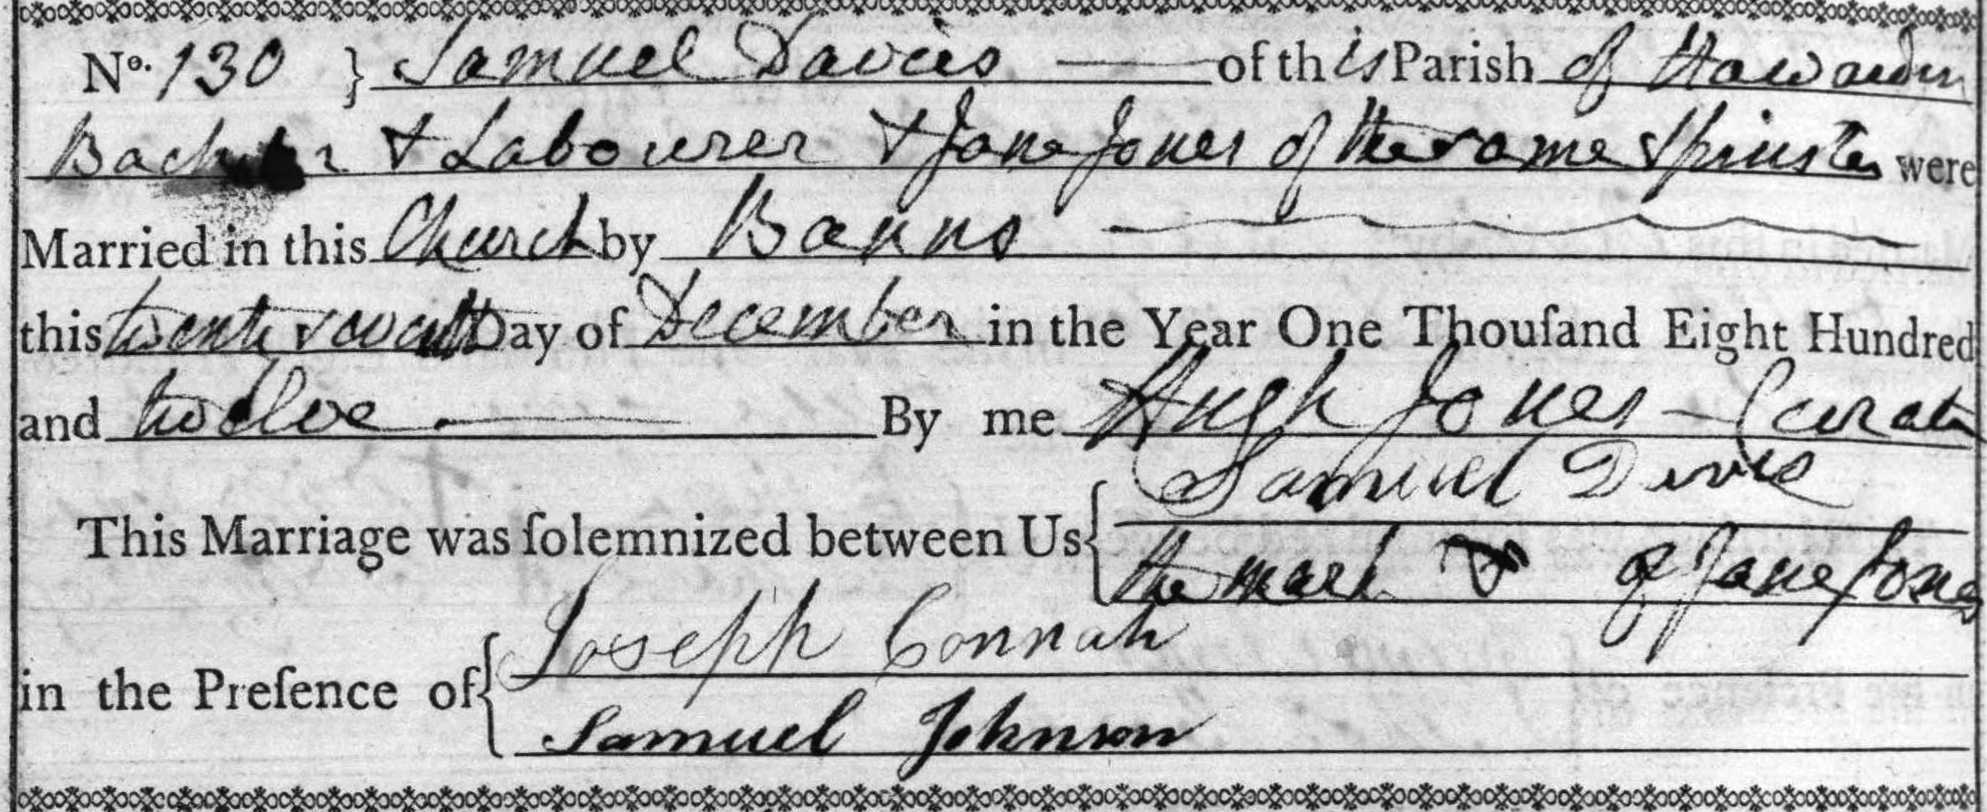 No. 130 } Samuel Davies — of this Parish of Hawarden
Bachelor & Labourer & Jane Jones of the same Spinster were
Married in this Church by Banns
this twenty seventh Day of December in the Year One Thouſand Eight Hundred
and twelve. — By me Hugh Jones – Curate
This Marriage was ſolemnized between Us { Samuel Davis
the mark of Jane Jones
in the Preſence of { Joseph Connah
Samuel Johnson